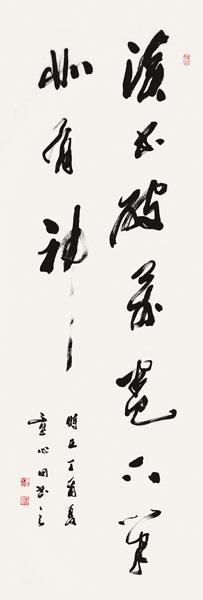 读书破万卷下笔
如有神
时在丁酉夏
意心田书之